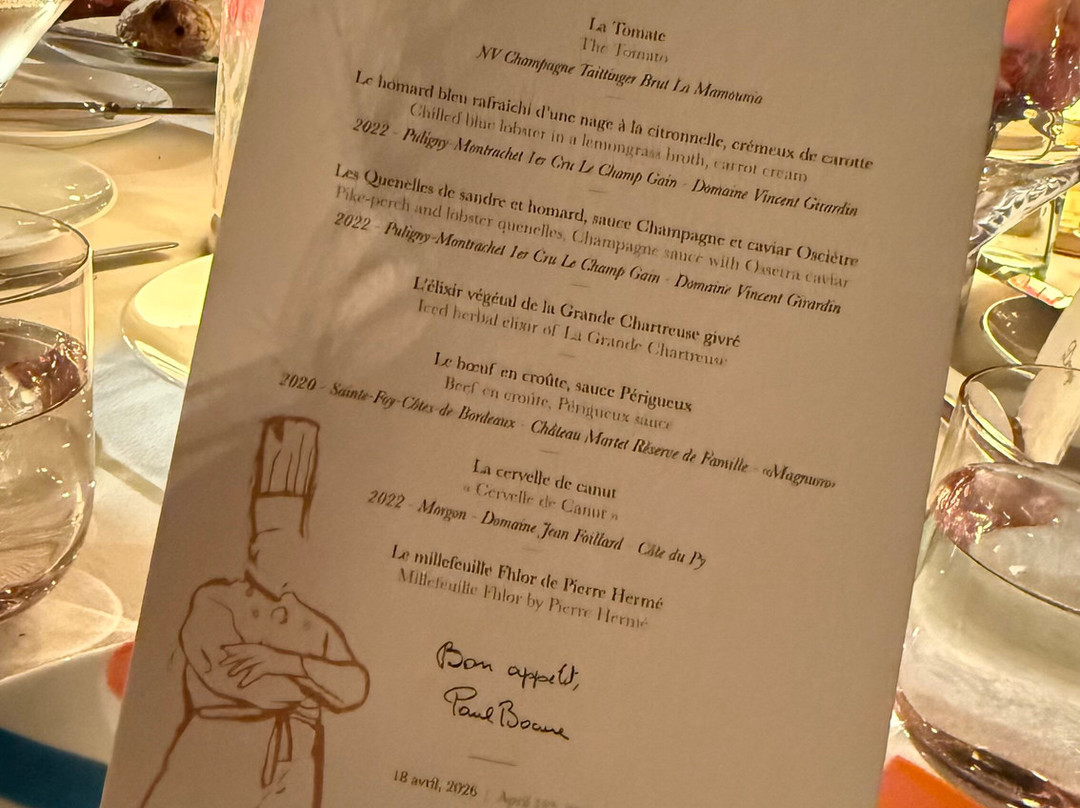 La Tomate
The Tomato
NV Champagne Taittinger Brut La Mamounia
Le homard bleu rafraîchi d'une nage à la citronnelle, crémeux de carotte
Chilled blue lobster in a lemongrass broth, carrot cream
2022 - Puligny-Montrachet 1er Cru Le Champ Gain - Domaine Vincent Girardin
Les Quenelles de sandre et homard, sauce Champagne et caviar Osciètre
Pike-perch and lobster quenelles, Champagne sauce with Osseira caviar
2022 - Puligny-Montrachet 1er Cru Le Champ Gain - Domaine Vincent Girardin
L'élixir végétal de la Grande Chartreuse givré
Iced herbal elixir of La Grande Chartreuse
Le bœuf en croûte, sauce Périgueux
Beef en croûte, Périgueux sauce
2020 - Sainte-Foy-Côtes de Bordeaux - Château Martet Réserve de Famille - «Magnum»
La cervelle de canut
« Cervelle de Canut »
2022 - Morgon - Domaine Jean Foillard - Côte du Py
Le millefeuille Fhlor de Pierre Hermé
Millefeuille Fhlor by Pierre Hermé
Bon appétit,
Paul Bocuse
18 avril, 2026 | April 18th